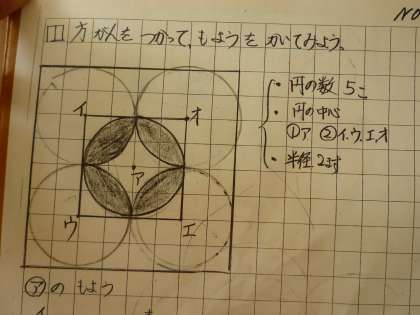 NO
1 方がんをつかって、もようをかいてみよう。
・円の数 5こ
・円の中心
①ア ②イ、ウ、エ、オ
・半径2ます
イ
オ
ア
ウ
エ
㋐の もよう